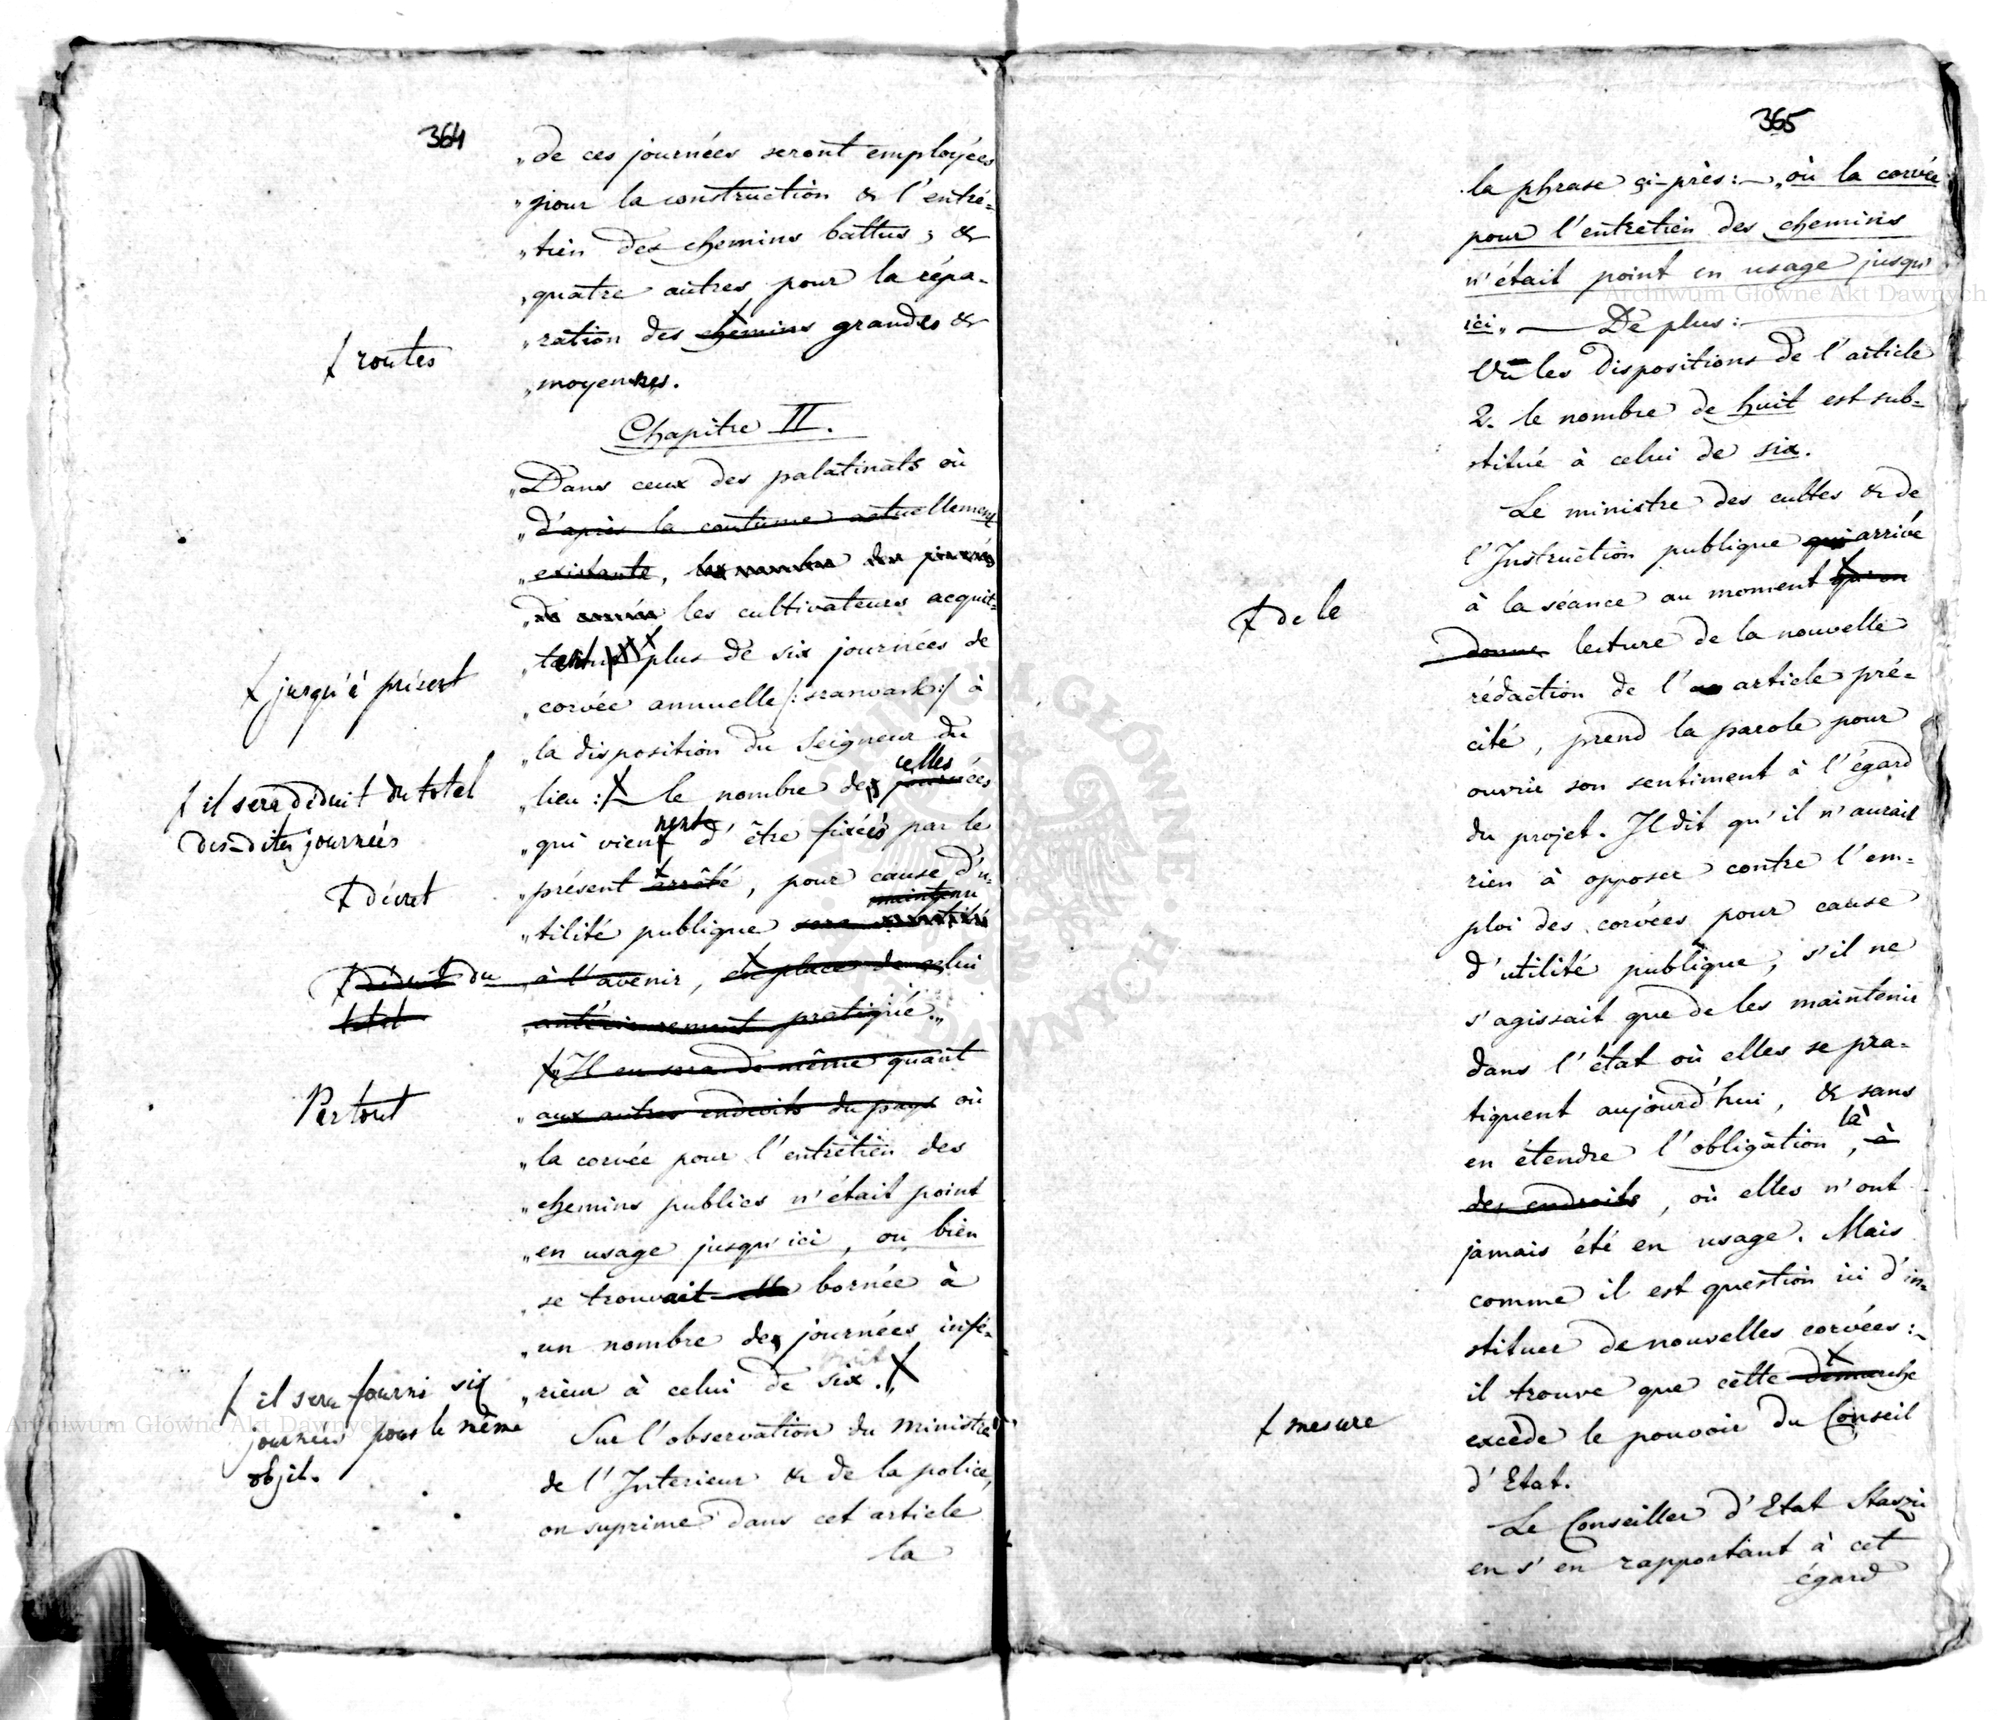 364
„de ces journées seront employées
„pour la construction & l'entre-
„tien des chemins battus; &
„quatre autres pour la répa-
„ration des chemins grandes &
ꝉ routes
„moyennes.
Chapitre II.
„Dans ceux des palatinats où
„d'après la coutume actuellement
„existante,
„les cultivateurs acquit-
„tent plus de six journées de
ꝉ jusqu'à présent
„corvée annuelle /:szarwark:/ à
„la disposition du Seigneur du
celles
„lieu :/ le nombre des journées
ꝉ il sera déduit du total
des-dites journées
nent
„qui vient d'être fixées par le
„présent arrêté, pour cause d'u-
ꝉ décret
maintenu
„tilité publique sera
„à l'avenir, en place de celui
ꝉ déduit du
total
„antérieurement pratiqué.„
„Il en sera de même quant
„aux autres endroits du pays où
Partout
„la corvée pour l'entretien des
„chemins publics n'était point
„en usage jusqu'ici, ou bien
„se trouvait elle bornée à
„un nombre des journées infé-
„rieur à celui de six.„
ꝉ il sera fourni six
journées pour le même
objet.
Sur l'observation du ministre
de l'Interieur & de la police,
on suprime dans cet article
la
365
la phrase çi-près: „où la corvée
pour l'entretien des chemins
n'était point en usage jusqu'
ici„ — De plus:
Vu les dispositions de l'article
2. le nombre de huit est sub-
stitué à celui de six.
Le ministre des cultes & de
l'Instruction publique qui arrivé
à la séance au moment qu'on
ꝉ de le
donne lecture de la nouvelle
rédaction de l'article pré-
cité, prend la parole pour
ouvrir son sentiment à l'égard
du projet. Il dit qu'il n'aurait
rien à opposer contre l'em-
ploi des corvées pour cause
d'utilité publique, s'il ne
s'agissait que de les maintenir
dans l'état où elles se pra-
tiquent aujourd'hui, & sans
là
en étendre l'obligation, à
des endroits, où elles n'ont
jamais été en usage. Mais
comme il est question ici d'in-
stituer de nouvelles corvées:
il trouve que cette démarche
ꝉ mesure
excède le pouvoir du Conseil
d'Etat.
Le Conseiller d'Etat Staszic
en s'en rapportant à cet
égard
Archiwum Główne Akt Dawnych
Archiwum Główne Akt Dawnych
ARCHIWUM GŁÓWNE AKT DAWNYCH